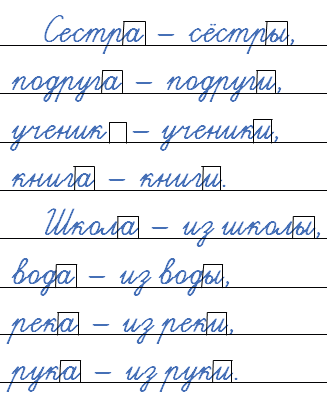 Сестра – сёстры,
подруга – подруги,
ученик – ученики,
книга – книги.
Школа – из школы,
вода – из воды,
река – из реки,
рука – из руки.